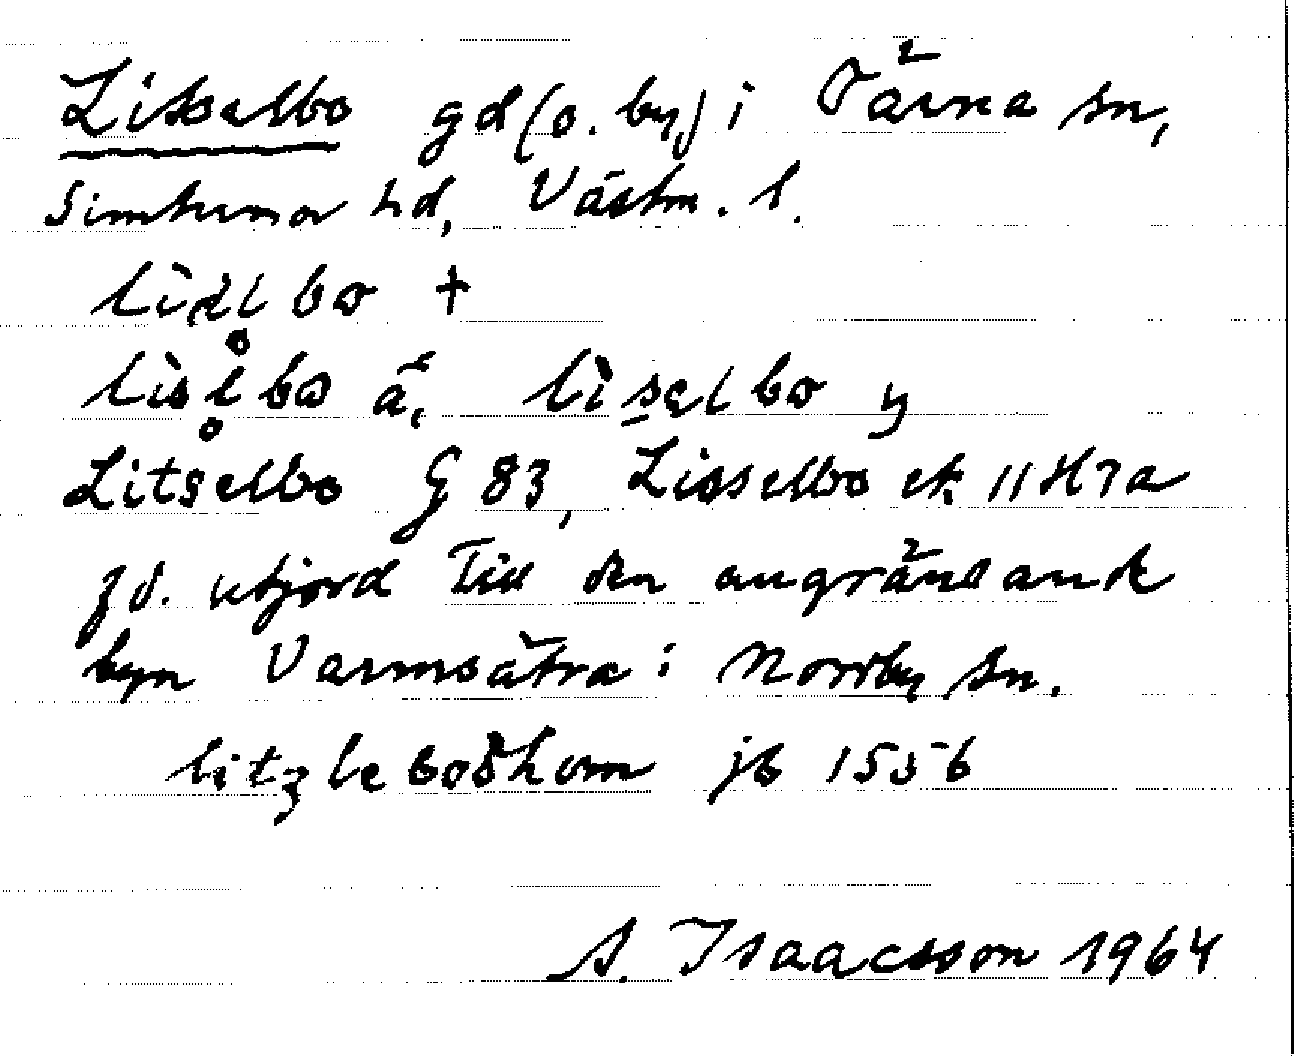 Lisselbo gd (o. by) i Tärna sn,
Simtuna hd, Västm. l.
lislbo †
lislbo ä, liselbo y
Litselbo G 83, Lisselbo ek 11H7a
fd. utjord Till den angränsande
byn Varmsätra i Norrby sn.
litzlebodhom jb 1556
S. Isaacsson 1964